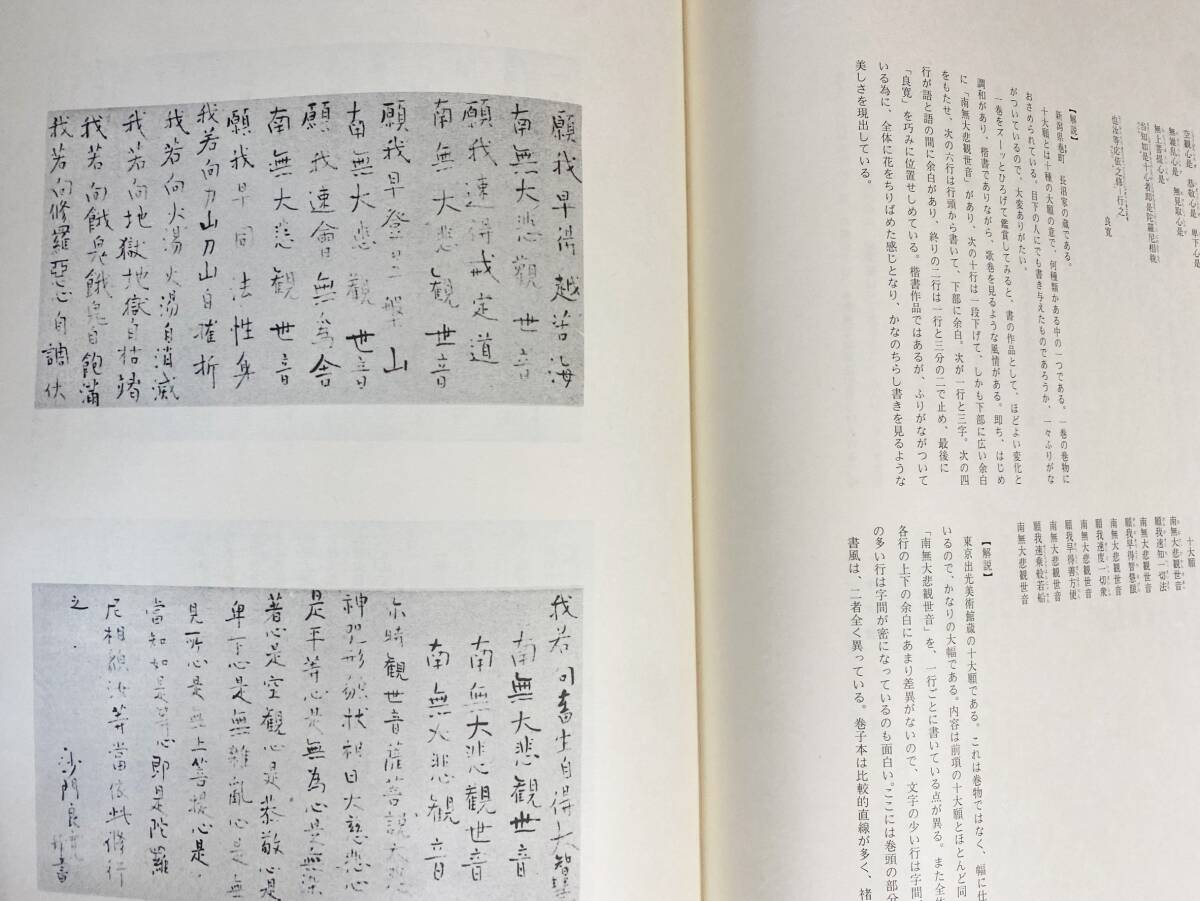 空観心是 恭敬心是 卑下心是
無雑乱心是 無見取心是
無上菩提心是
当知如是十心者即是陀羅尼相貌
也汝等応依之修行之
良寛
【解説】
新潟県巻町 長沼家の蔵である。
十大願とは十種の大願の意で、何種類かある中の一つである。一巻の巻物に
おさめられている。目下の人にでも書き与えたものであろうか、一々ふりがな
がついているので、大変ありがたい。
一巻をズーッとひろげて鑑賞してみると、書の作品として、ほどよい変化と
調和があり、楷書でありながら、歌巻を見るような風情がある。即ち、はじめ
に「南無大悲観世音」があり、次の十行は一段下げて、しかも下部に広い余白
をもたせ、次の六行は行頭から書いて、下部に余白。次が一行と三字。次の四
行が語と語の間に余白があり、終りの二行は一行と三分の二で止め、最後に
「良寛」を巧みに位置せしめている。楷書作品ではあるが、ふりがながついて
いる為に、全体に花をちりばめた感じとなり、かなのちらし書きを見るような
美しさを現出している。
十大願
南無大悲観世音
願我速知一切法
南無大悲観世音
願我早得智慧眼
南無大悲観世音
願我速度一切衆
南無大悲観世音
願我早得善方便
南無大悲観世音
願我速乗般若船
南無大悲観世音
【解説】
東京出光美術館蔵の十大願である。これは巻物ではなく、幅に仕
いるので、かなりの大幅である。内容は前項の十大願とほとんど同
「南無大悲観世音」を、一行ごとに書いている点が異る。また全体
各行の上下の余白にあまり差異がないので、文字の少い行は字間
の多い行は字間が密になっているのも面白い。ここには巻頭の部分
書風は、二者全く異っている。巻子本は比較的直線が多く、褚
願我早得越苦海
南無大悲観世音
願我速得戒定道
南無大悲観世音
願我早登涅槃山
南無大悲観世音
願我速會無為舍
南無大悲観世音
願我早同法性身
我若向刀山刀山自摧折
我若向火湯火湯自消滅
我若向地獄地獄自枯竭
我若向餓鬼餓鬼自飽滿
我若向修羅惡心自調伏
我若向畜生自得大智慧
南無大悲観世音
南無大悲観世音
南無大悲観音
尔時観世音菩薩説大悲
神咒形貌状相曰大慈悲心
是平等心是無為心是無染
著心是空観心是恭敬心是
卑下心是無雜亂心是無
見取心是無上菩提心是
當知如是等心即是陀羅
尼相貌汝等當依此修行
之
沙門良寛